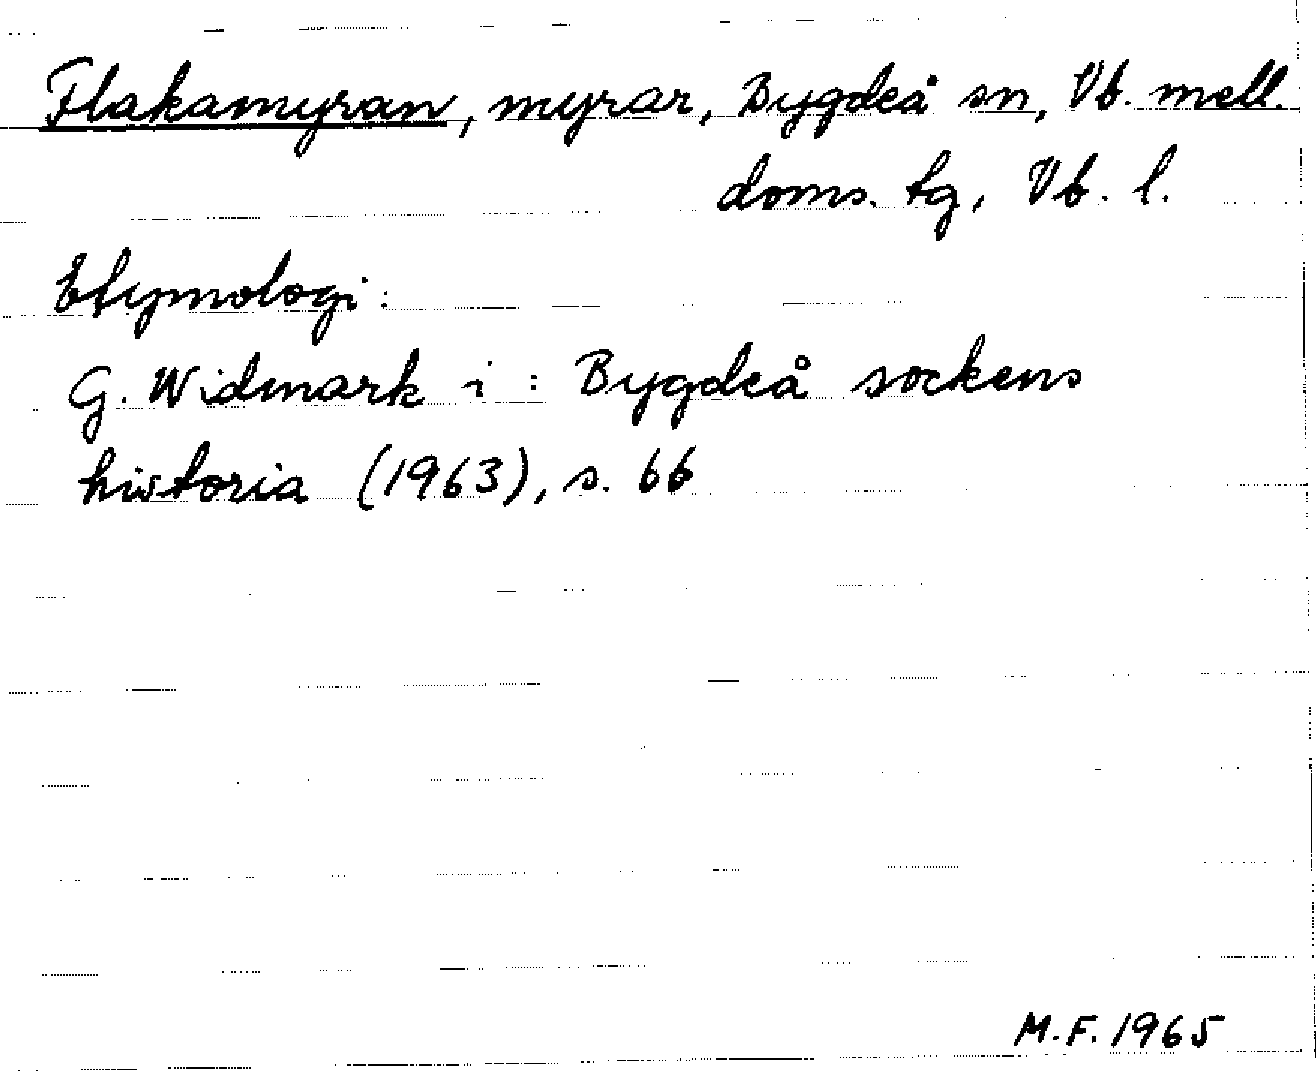 Flakamyran, myrar, Bygdeå sn, Vb. mell.
doms. tg, Vb. l.
Etymologi:
G. Widmark i: Bygdeå sockens
historia (1963), s. 66
M.F. 1965